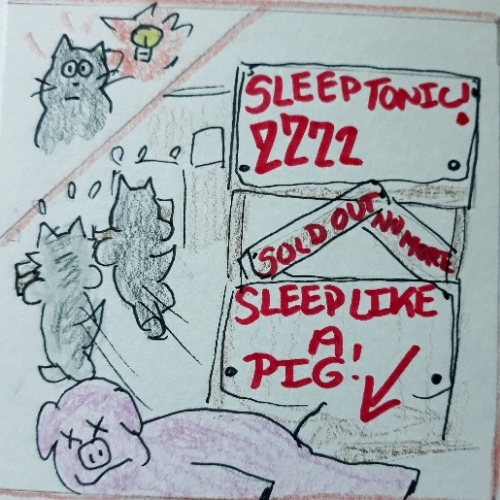 SLEEPTONIC!
ZZZZ
SOLD OUT
NO MORE
SLEEP LIKE
A
PIG!